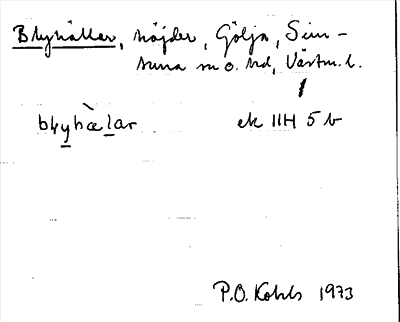 Blyhällar, höjder, Gölja, Sim-
tuna sn o. hd, Västm. l.
blyhæ̀lar ek 11H 5 b
P.O. Kohls 1973